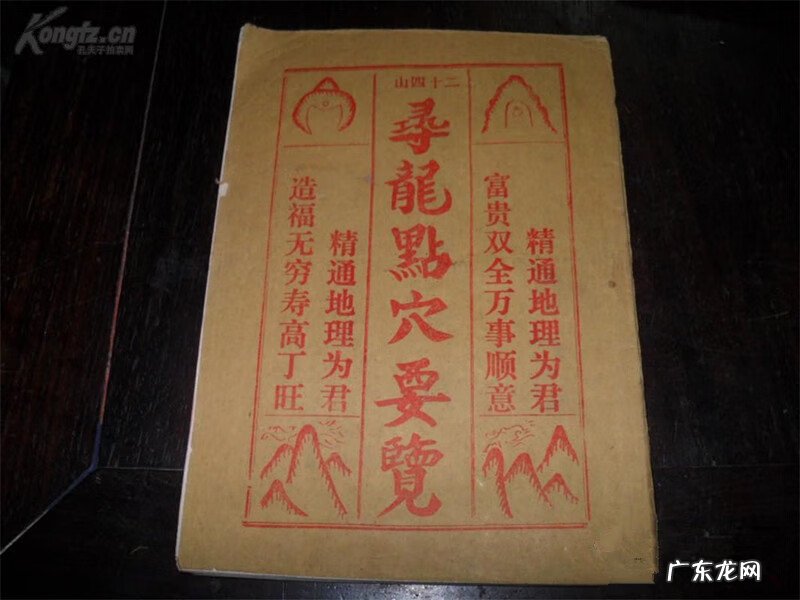 Kongfz.cn
孔夫子拍卖网
二十四山
精通地理为君
富贵双全万事顺意
尋龍點穴要覽
精通地理为君
造福无穷寿高丁旺
广东龙网